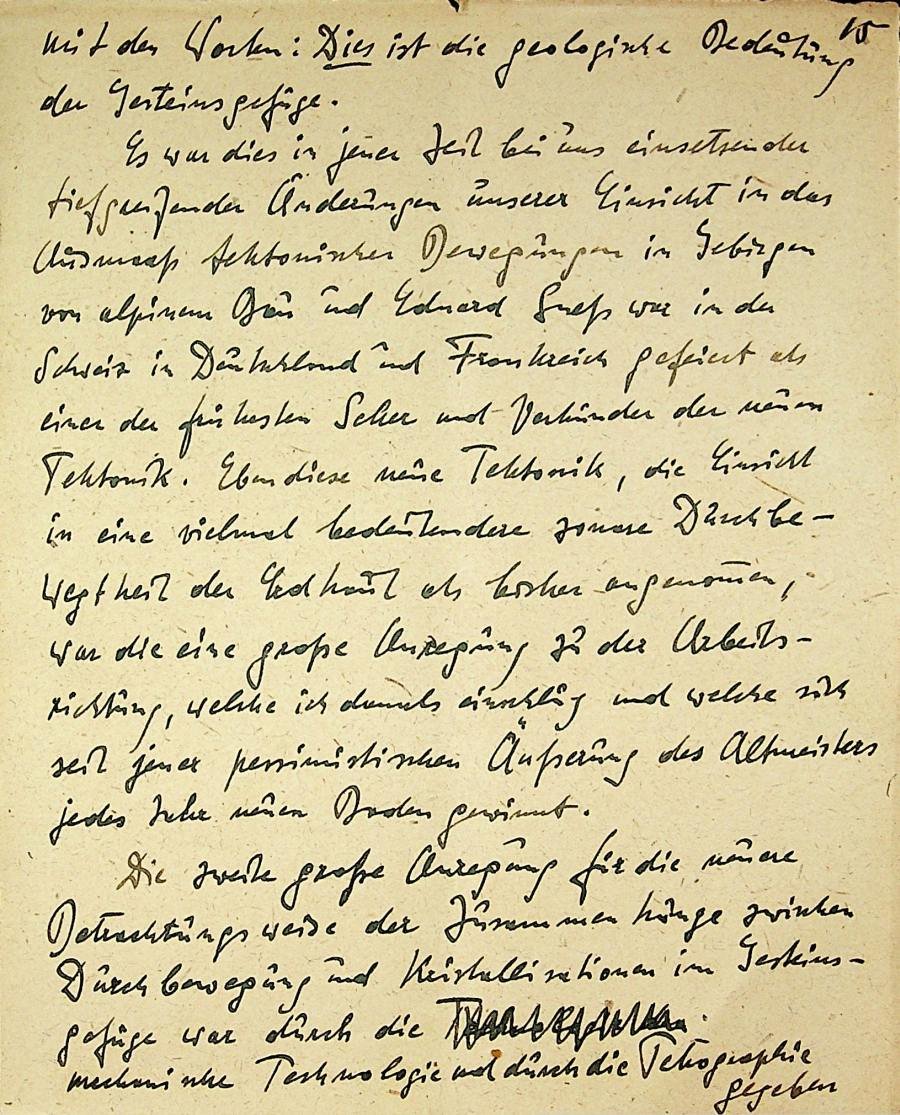 15
mit den Worten: Dies ist die geologische Bedeutung
der Gesteinsgefüge.
Es war dies in jener Zeit bei uns einsetzender
tiefgreifender Änderungen unserer Einsicht in das
Ausmaaß tektonischer Bewegungen in Gebirgen
von alpinem Bau und Eduard Sueß war in der
Schweiz in Deutschland und Frankreich gefeiert als
einer der frühesten Seher und Verkünder der neuen
Tektonik. Eben diese neue Tektonik, die Einsicht
in eine vielmal bedeutendere Durchbe-
wegtheit der Erdhaut als bisher angenommen,
war die eine große Anregung zu der Arbeits-
richtung, welche ich damals einschlug und welche sich
seit jener pessimistischen Äußerung des Altmeisters
jedes Jahr neuen Boden gewinnt.
Die zweite große Anregung für die neuere
Betrachtungsweise der Zusammenhänge zwischen
Durchbewegung und Kristallisationen im Gesteins-
gefüge war durch die
mechanische Technologie und durch die Petrographie
gegeben